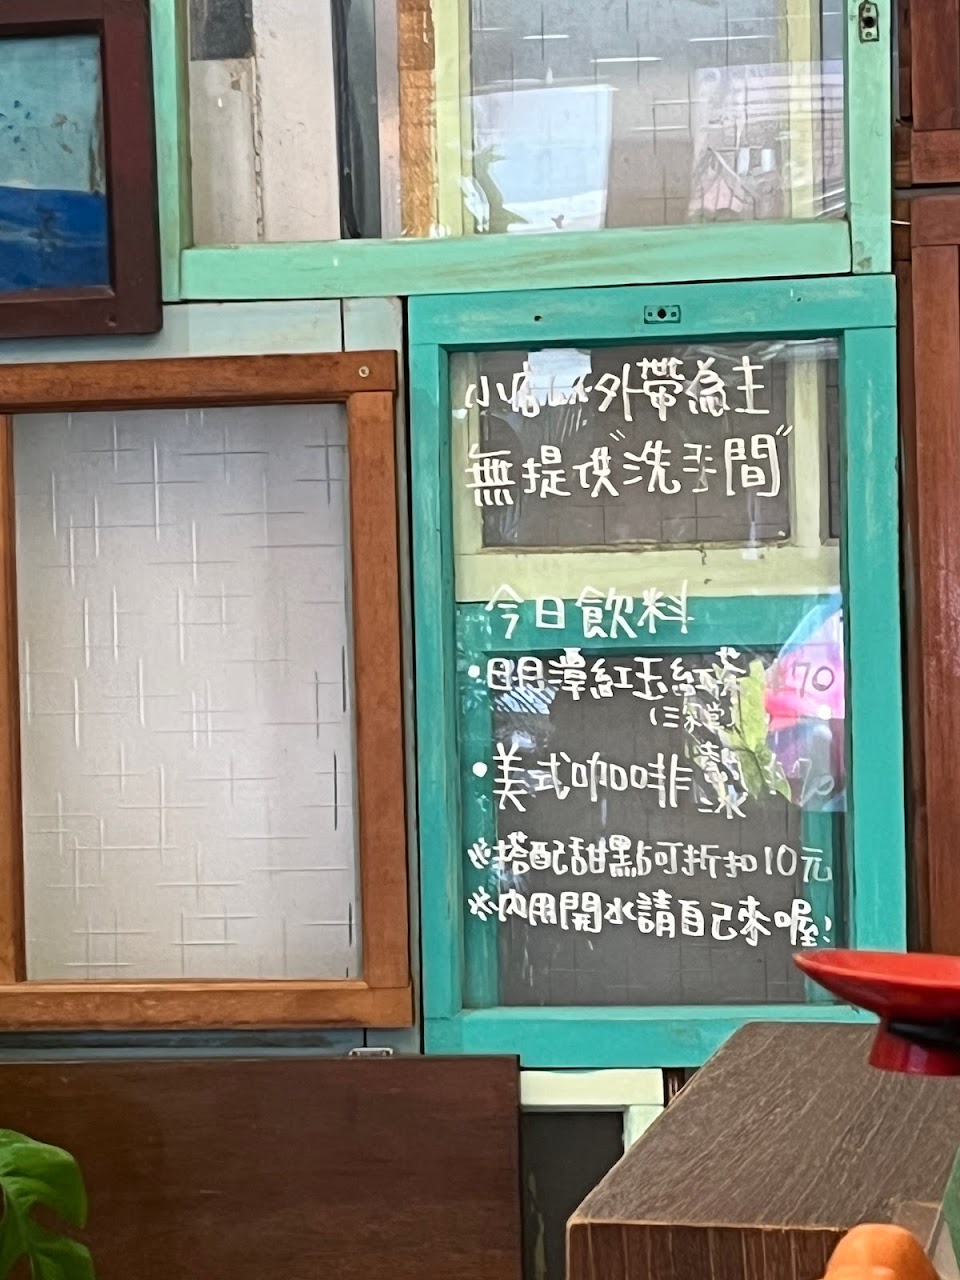 小店以外帶為主
無提供"洗手間"
今日飲料
•日月潭紅玉紅茶 70
(三合堂)
•美式咖啡 熱 冰 70
※搭配甜點可折扣10元
※內用開水請自己來喔!